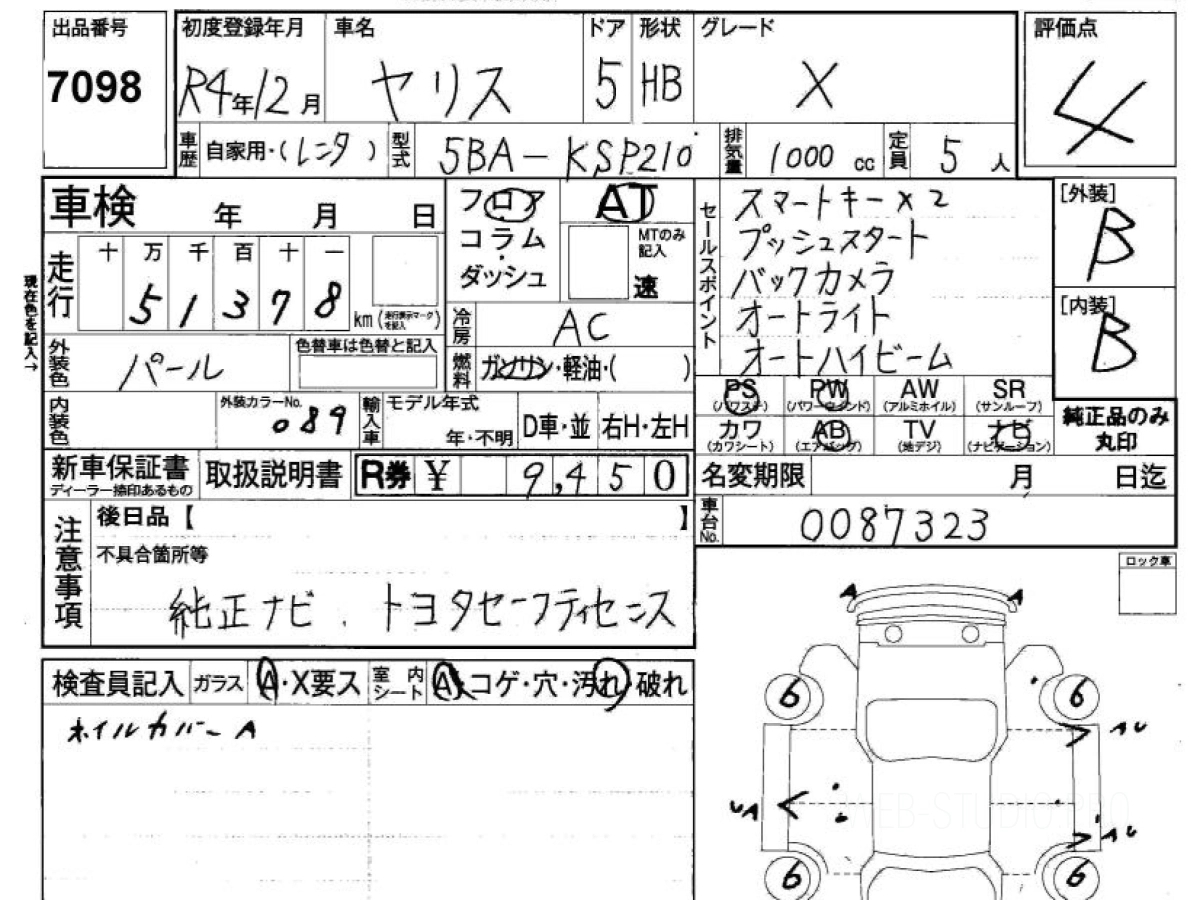 出品番号 初度登録年月 車名 ドア 形状 グレード 評価点
7098 R4年12月 ヤリス 5 HB X 4
車歴 自家用・(レンタ) 型式 5BA-KSP210 排気量 1000 cc 定員 5人
車検 年 月 日
フロア AT
コラム MTのみ記入
ダッシュ 速
セールスポイント
スマートキー×2
プッシュスタート
バックカメラ
オートライト
オートハイビーム
[外装]
B
[内装]
B
現在色を記入→
走行 十 万 千 百 十 一
5 1 3 7 8 km (走行表示マークを記入)
冷房 AC
外装色 パール 色替車は色替と記入
燃料 ガソリン・軽油・( )
PS (パワステ) PW (パワーウインド) AW (アルミホイル) SR (サンルーフ)
カワ (カワシート) AB (エアバッグ) TV (地デジ) ナビ (ナビゲーション)
純正品のみ
丸印
内装色 外装カラーNo. 089 輸入車 モデル年式 年・不明 D車・並 右H・左H
新車保証書 ディーラー捺印あるもの 取扱説明書 R券 ¥ 9,450
名変期限 月 日迄
車台No. 0087323
注意事項
後日品【 】
不具合箇所等
純正ナビ、トヨタセーフティセンス
ロック車
検査員記入 ガラス A・X要ス 室内シート A・コゲ・穴・汚れ・破れ
ホイルカバーA
A A
6 6
AU
UA
AU
6 6
WEB-STUDIO.PRO